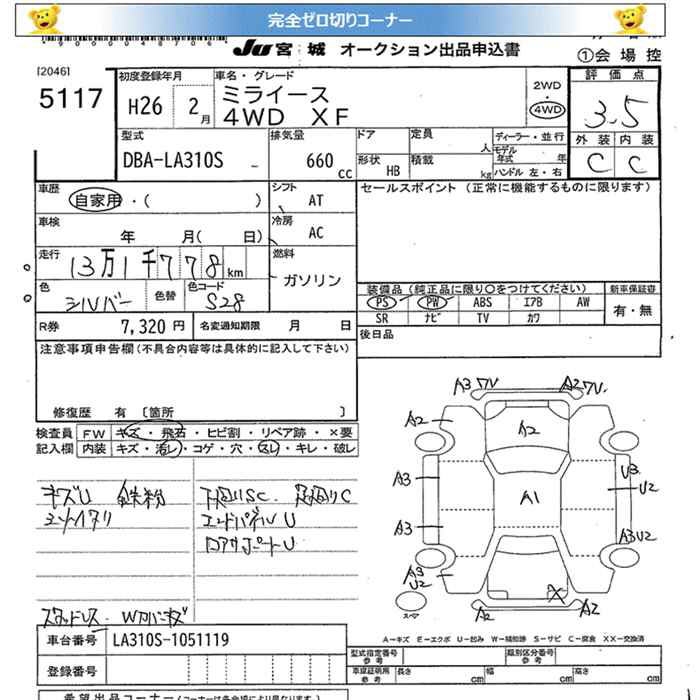 完全ゼロ切りコーナー
Ju 宮城 オークション出品申込書
①会場控
[2046]
5117
初度登録年月
H26 2月
車名・グレード
ミライース
4WD XF
2WD
・
4WD
評価点
3.5
外装 内装
C C
型式
DBA-LA310S
排気量
660 CC
ドア
形状 HB
定員 人
積載 kg
ディーラー・並行
モデル年式 年
ハンドル 左・右
車歴
自家用・( )
シフト AT
車検
年 月( 日)
冷房 AC
走行
13万1千778km
燃料
ガソリン
色
シルバー
色替
色コード
S28
R券 7,320円
名変通知期限 月 日
セールスポイント (正常に機能するものに限ります)
装備品 (純正品に限り○をつけてください)
新車保証書
PS PW ABS エアB AW
有・無
SR ナビ TV カワ
後日品
注意事項申告欄(不具合内容等は具体的に記入して下さい)
修復歴 有 [箇所 ]
検査員 FW キズ・飛石・ヒビ割・リペア跡・×要
記入欄 内装 キズ・汚レ・コゲ・穴・スレ・キレ・破レ
キズU 鉄粉
下回りSC 足回りC
エンドパネルU
ロアサポートU
スタッドレス
A3 ワV
A2 ワV
A2
A2
A3
A1
U3
U2
A3
A3U2
A3
U2
X
スペア
A2
A2
A－キズ E－エクボ U－凹み W－補修跡 S－サビ C－腐食 XX－交換済
車台番号 LA310S-1051119
型式指定番号
参考
類別区分番号
参考
登録番号
車庫証明用
参考
長さ cm
幅 cm
高さ cm
希望出品コーナー